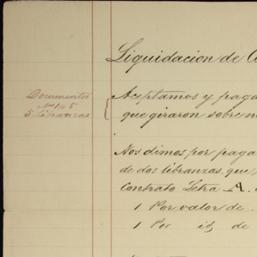 Liquidacion de
Documentos
Nos 1 á 5
5 libranzas
Aceptamos y paga
que giraron sobre n
Nos dimos por paga
de dos libranzas que,
Contrato Letra A.
1 Por valor de
1 Por id de